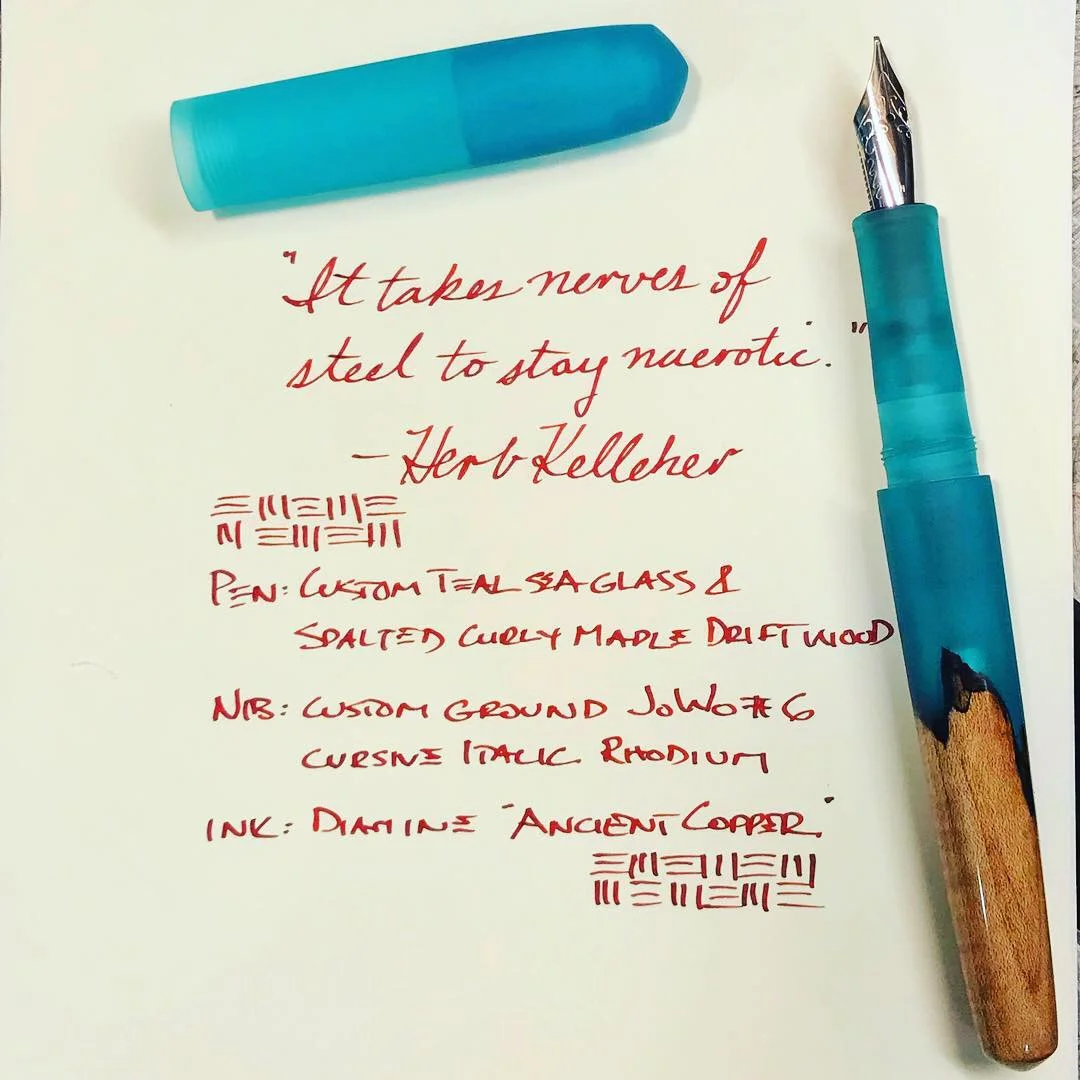 "It takes nerves of
steel to stay nuerotic."
- Herb Kelleher
PEN: CUSTOM TEAL SEA GLASS &
SPALTED CURLY MAPLE DRIFTWOOD
NIB: CUSTOM GROUND JOWO #6
CURSIVE ITALIC RHODIUM
INK: DIAMINE "ANCIENT COPPER."